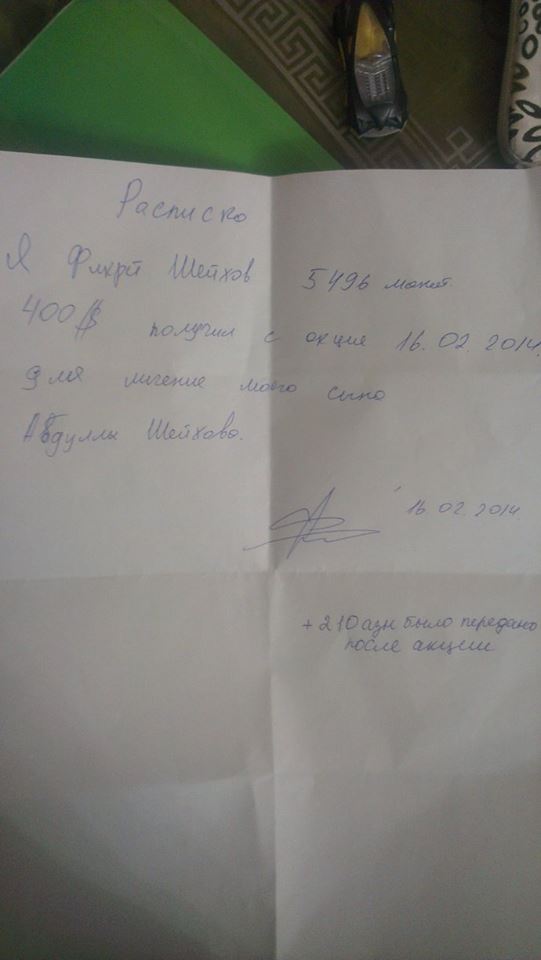 Расписка
Я Фикрет Шейхов 5496 манат
400$ получил с акции 16.02.2014.
Для личение моего сына
Абдуллы Шейхова.
16.02.2014.
+210 азн было передано
после акции